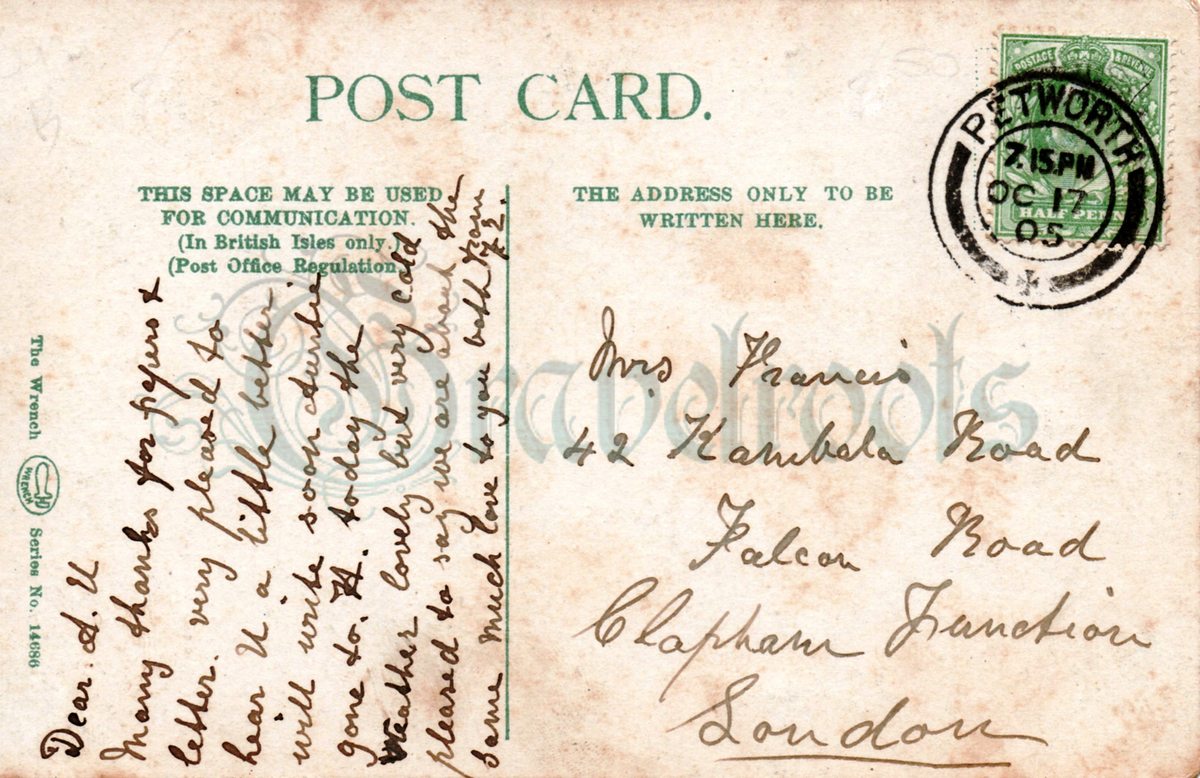 POST CARD.
THIS SPACE MAY BE USED
FOR COMMUNICATION.
(In British Isles only.)
(Post Office Regulation
THE ADDRESS ONLY TO BE
WRITTEN HERE.
POSTAGE & REVENUE
HALF PENN
PETWORTH
7.15.PM
OC 17
05
Grabelroots
The Wrench WRENCH Series No. 14686
Dear A. U
Many thanks for papers &
letter. very pleased to
hear U a little better
will write soon
gone to. H. today the
Weather lovely but very cold
pleased to say we are about the
same Much love to you both from
Mrs Francis
42 Kambala Road
Falcon Road
Clapham Junction
London